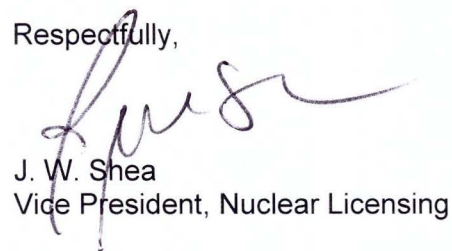 Respectfully,
J. W. Shea
Vice President, Nuclear Licensing